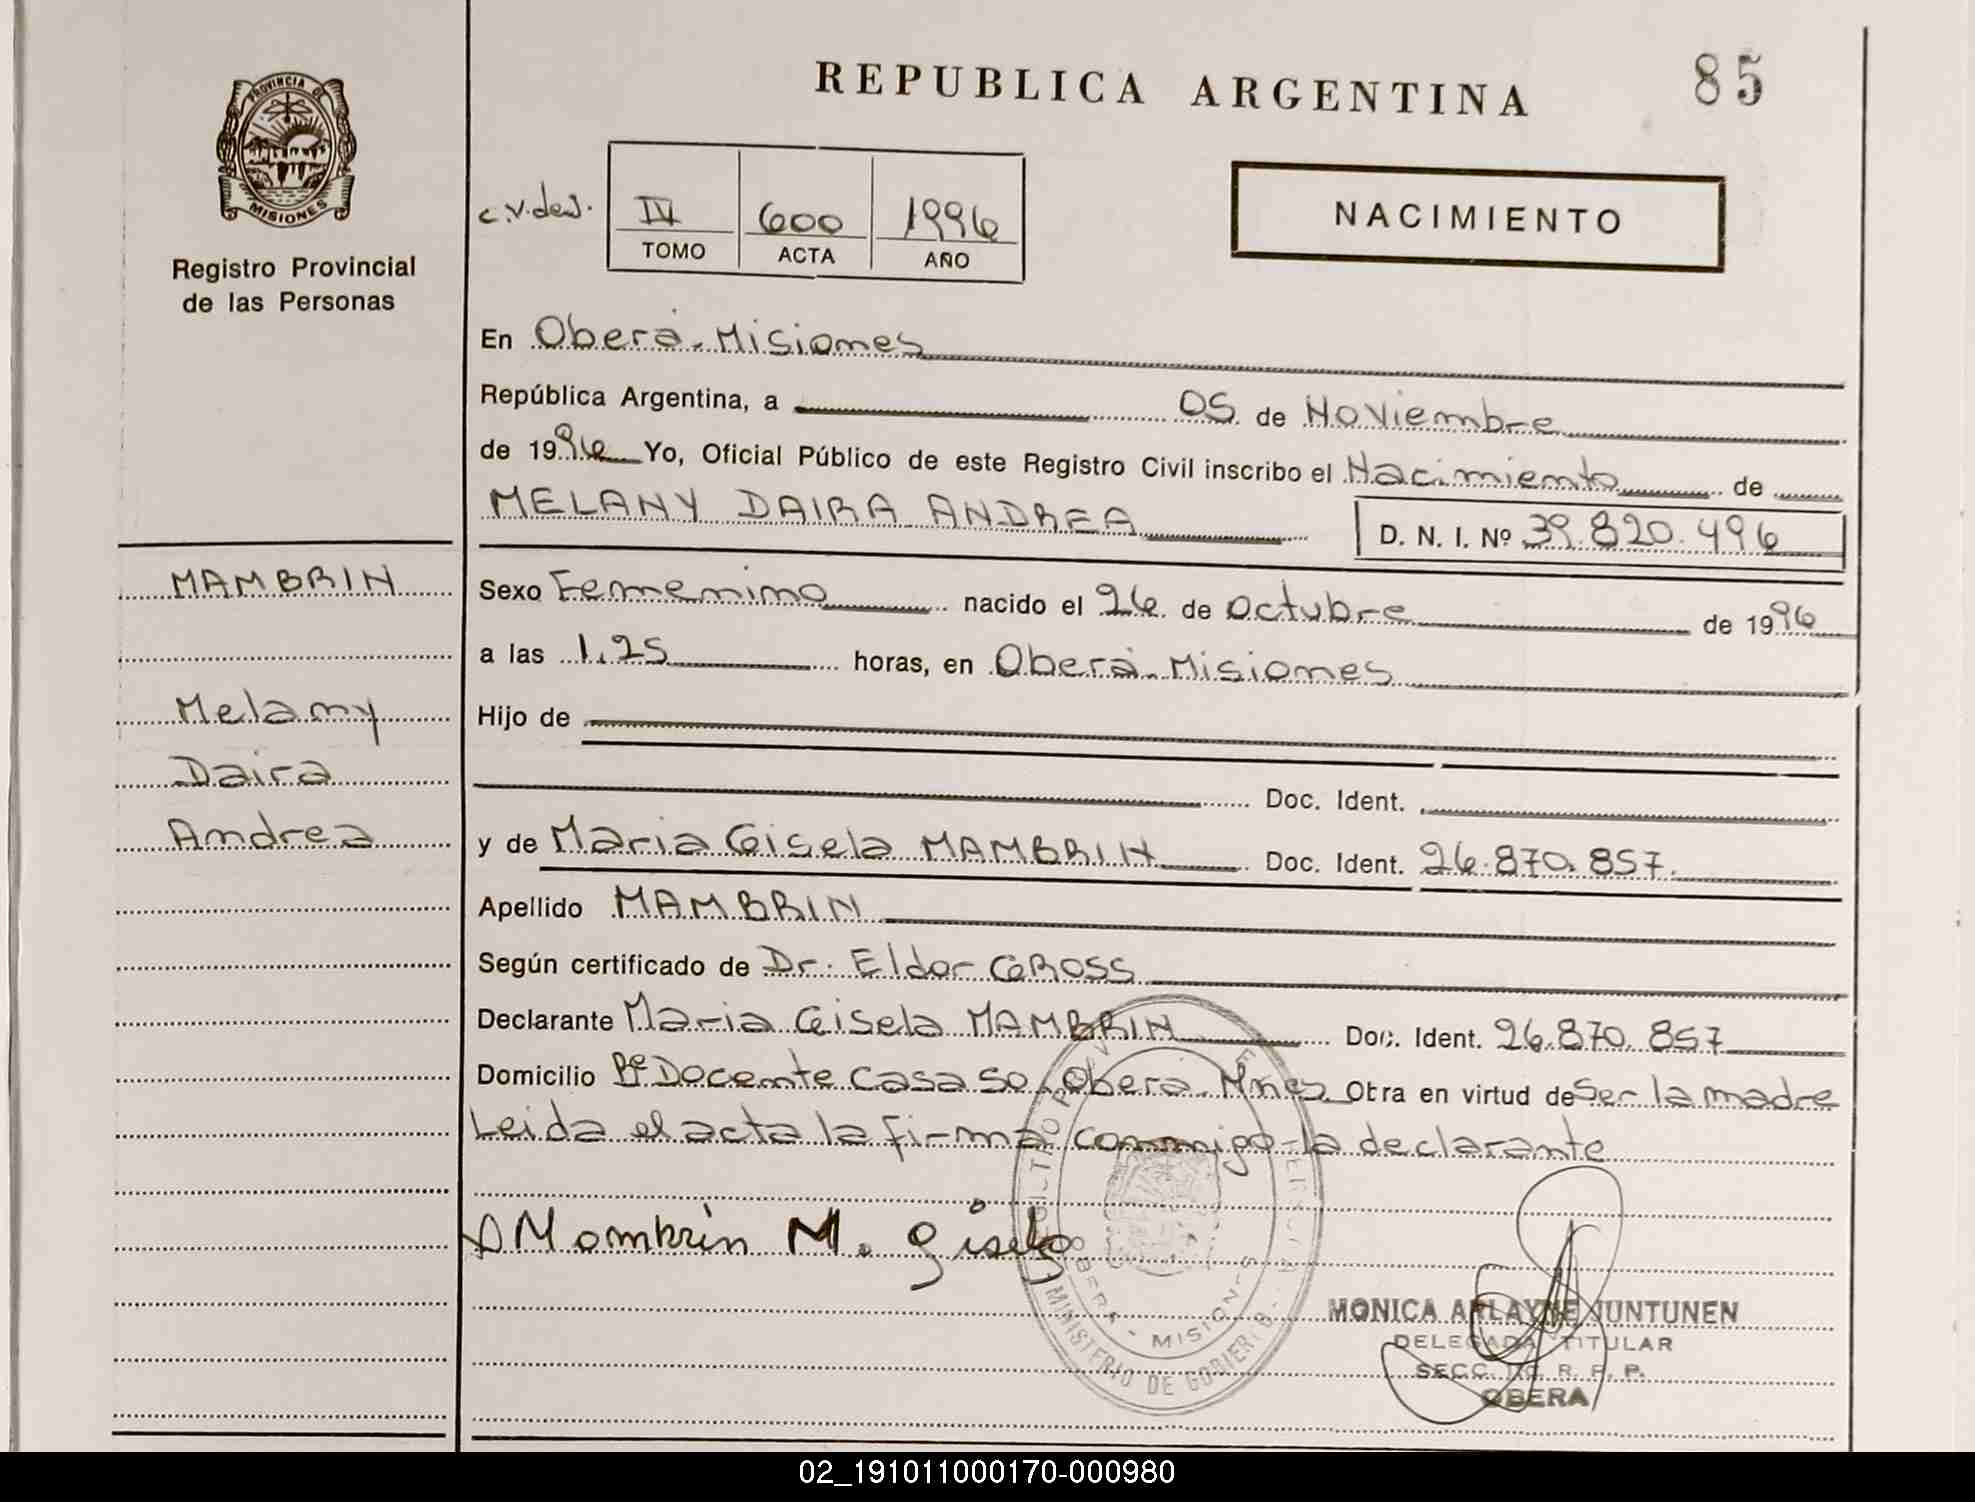 PROVINCIA DE
MISIONES
Registro Provincial
de las Personas
REPUBLICA ARGENTINA
85
IV 600 1996
TOMO ACTA AÑO
NACIMIENTO
En Oberá-Misiones
República Argentina, a 05 de Noviembre
de 1996 Yo, Oficial Público de este Registro Civil inscribo el Nacimiento de
MELANY DAIRA ANDREA D. N. I. Nº 39.820.496
MAMBRIN
Sexo Femenino nacido el 26 de Octubre de 1996
a las 1,25 horas, en Oberá-Misiones
Melany
Daira
Andrea
Hijo de
Doc. Ident.
y de Maria Gisela MAMBRIN Doc. Ident. 26.870.857.
Apellido MAMBRIN
Según certificado de Dr. Eldor GROSS
Declarante Maria Gisela MAMBRIN Doc. Ident. 26.870.857
Domicilio Bº Docente Casa 50-Obera-Mnes Obra en virtud de Ser la madre
Leida el acta la firma conmigo la declarante
Mambrin M. gisela
OBERA - MISIONES
MINISTERIO DE GOBIERNO
MONICA ARLAYNE JUNTUNEN
DELEGADA TITULAR
SECC. R. P. P.
OBERA
02_191011000170-000980